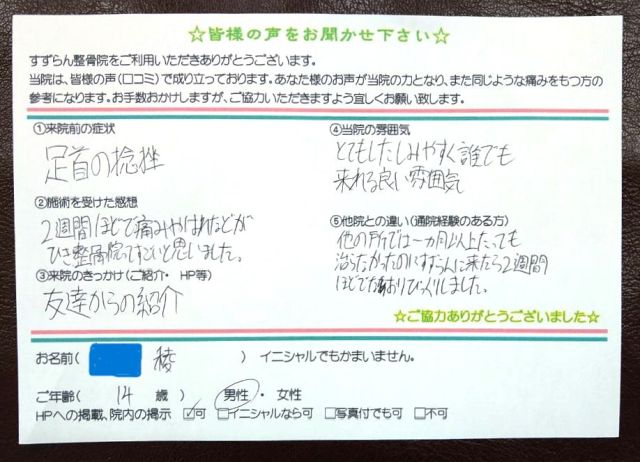 ☆皆様の声をお聞かせ下さい☆
すずらん整骨院をご利用いただきありがとうございます。
当院は、皆様の声(口コミ)で成り立っております。あなた様のお声が当院の力となり、また同じような痛みをもつ方の
参考になります。お手数おかけしますが、ご協力いただきますよう宜しくお願い致します。
①来院前の症状
足首の捻挫
②施術を受けた感想
2週間ほどで痛みやはれなどが
ひき整骨院ってすごいと思いました。
③来院のきっかけ(ご紹介・HP等)
友達からの紹介
④当院の雰囲気
とてもしたしみやすく誰でも
来れる良い雰囲気
⑤他院との違い(通院経験のある方)
他の所では一カ月以上たっても
治らなかったのにすずらんに来たら2週間
ほどでなおりびっくりしました。
☆ご協力ありがとうございました☆
お名前( 稜 )イニシャルでもかまいません。
ご年齢( 14 歳) 男性・女性
HPへの掲載、院内の掲示 ☑可 □イニシャルなら可 □写真付でも可 □不可